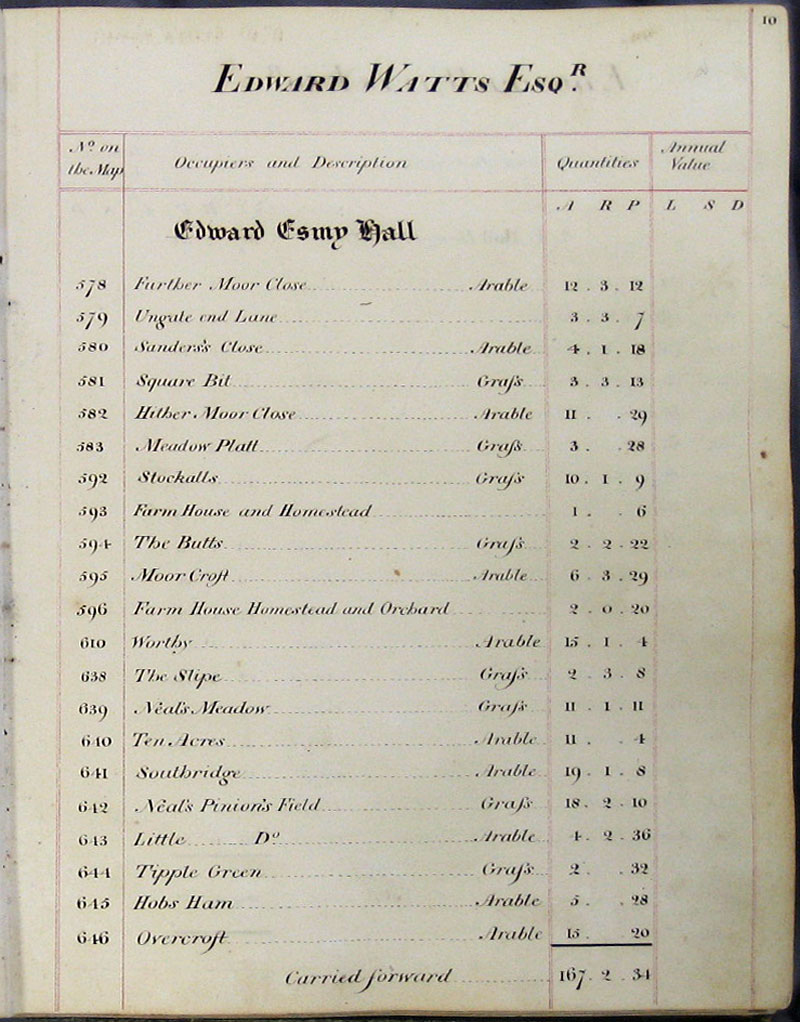 10
EDWARD WATTS ESQ.R
No. on the Map Occupiers and Description Quantities Annual Value
A R P L S D
Edward Esmy Hall
578 Farther Moor Close Arable 12 . 3 . 12
579 Ungate end Lane 3 . 3 . 7
580 Sanders's Close Arable 4 . 1 . 18
581 Square Bit Grass 3 . 3 . 13
582 Hither Moor Close Arable 11 . . 29
583 Meadow Platt Grass 3 . . 28
592 Stockalls Grass 10 . 1 . 9
593 Farm House and Homestead 1 . . 6
594 The Butts Grass 2 . 2 . 22
595 Moor Croft Arable 6 . 3 . 29
596 Farm House Homestead and Orchard 2 . 0 . 20
610 Worthy Arable 15 . 1 . 4
638 The Slipe Grass 2 . 3 . 8
639 Neal's Meadow Grass 11 . 1 . 11
640 Ten Acres Arable 11 . . 4
641 Southridge Arable 19 . 1 . 8
642 Neal's Pinion's Field Grass 18 . 2 . 10
643 Little Do. Arable 4 . 2 . 36
644 Tipple Green Grass 2 . . 32
645 Hobs Ham Arable 5 . . 28
646 Overcroft Arable 15 . 20
Carried forward 167 . 2 . 34